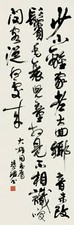 少小離家老大回鄉音未改
鬢毛衰兒童相見不相識笑
問客從何處來